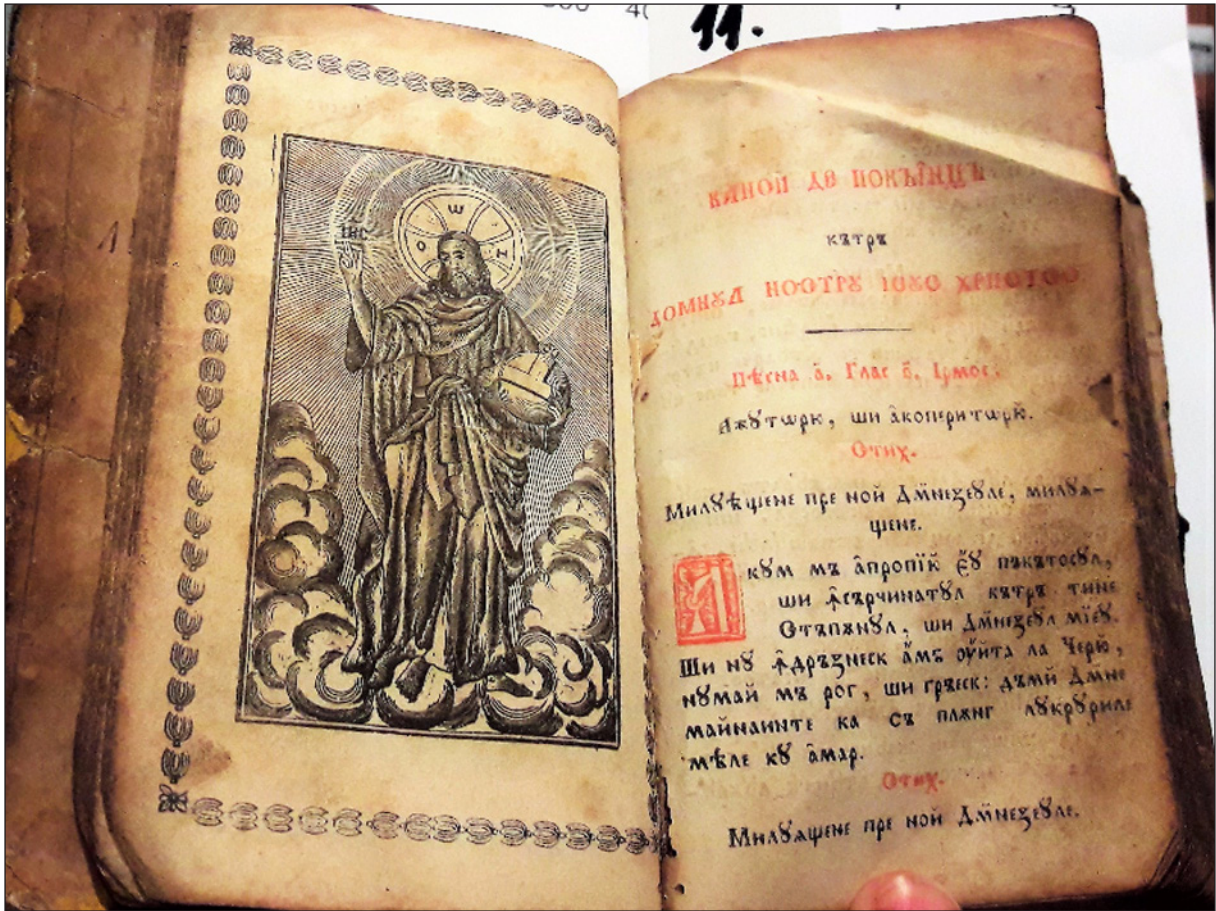 11.
ІИС
О Ѡ Н
КАНОН ДЕ ПОКЪИНЦЪ
кътръ
ДОМНꙋЛ НОСТРꙋ ІСꙋС ХРИСТОС
Пѣсна а҃, Глас ѕ҃, Ірмос:
Ажꙋтѡрю, ши а̂коперитѡрю̆.
Стих.
Милꙋѣщене пре ной Дм̃незеꙋле, милꙋѧ-
щене.
Акꙋм мъ а̂пропїй є̂ꙋ пъкътосꙋл,
ши ꙟсърчинатꙋл кътръ тине
Стъпѫнꙋл, ши Дм̃незеꙋл мїеꙋ.
Ши нꙋ ꙟдръзнеск а̂мъ ᲂу̂йта ла Черю̆,
нꙋмай мъ рог, ши гръеск: дъмй Дм̃не
майнаинте ка съ плѫнг лꙋкрꙋриле
мѣле кꙋ а̂мар.
Стих.
Милꙋѧщене пре ной Дм̃незеꙋле.